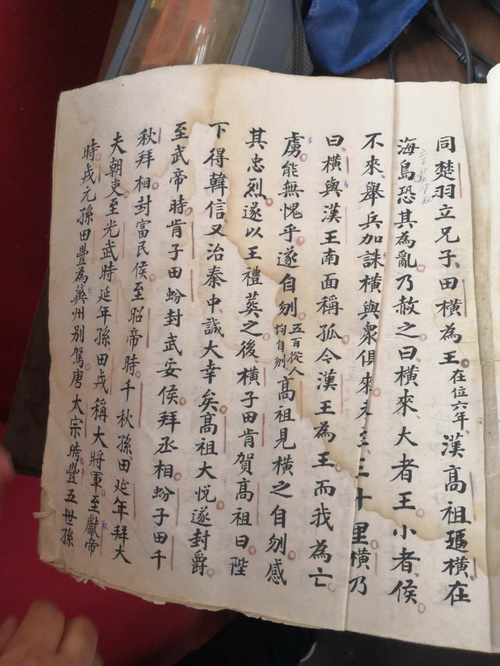 同楚羽立兄子田橫為王在位六年漢高祖聞橫在
海島恐其為亂乃赦之曰橫來大者王小者侯
不來舉兵加誅橫與衆俱來 三十里橫乃
曰橫與漢王南面稱孤今漢王為王而我為亡
虜能無愧乎遂自刎五百從人均自刎高祖見橫之自刎感
其忠烈遂以王禮葬之後橫子田肯賀高祖曰陛
下得韓信又治秦中誠大幸矣高祖大悅遂封爵
至武帝時肯子田蚡封武安侯拜丞相蚡子田千
秋拜相封富民侯至昭帝時千秋孫田延年拜大
夫朝吏至光武時延年孫田戎稱大將軍至獻帝
時戎元孫田豐為冀州别駕唐太宗時豐五世孫